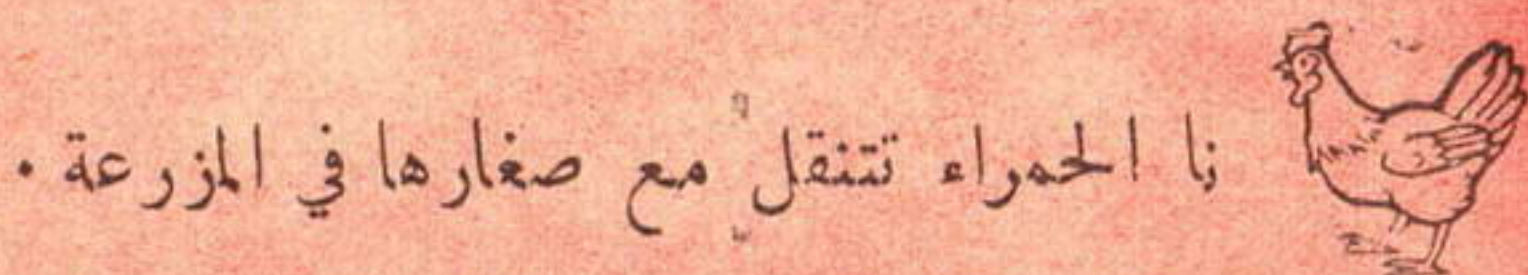 نا الحمراء تتنقل مع صغارها في المزرعة .